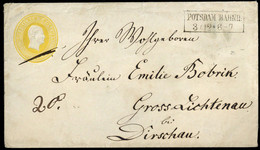 POTSDAM BAHNH.
Ihrer Wohlgeboren
Fräulein Emilie Bobrik
Gross-Lichtenau
bei
Dirschau.